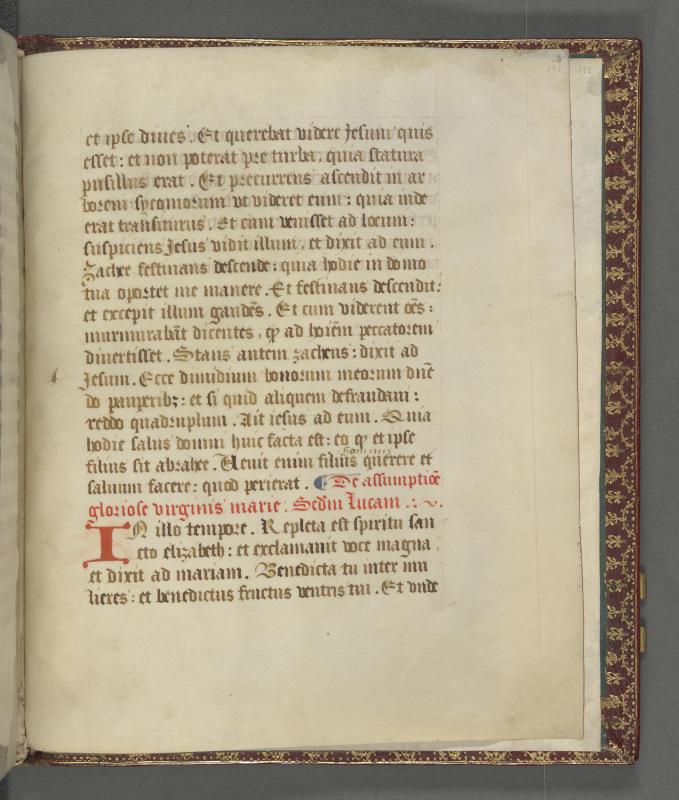 et ipse diues. Et querebat videre Jesum quis
esset: et non poterat pre turba. quia statura
pusillus erat. Et precurrens ascendit in ar
borem sycomorum vt videret eum: quia inde
erat transiturus. Et cum venisset ad locum:
suspiciens Jesus vidit illum, et dixit ad eum.
Zachee festinans descende: quia hodie in domo
tua oportet me manere. Et festinans descendit:
et excepit illum gaudēs. Et cum viderent oēs:
murmurabāt dicentes, qꝫ ad hoīem peccatorem
diuertisset. Stans autem zacheus: dixit ad
Jesum. Ecce dimidium bonorum meorum dnē
do pauperibꝫ: et si quid aliquem defraudaui:
reddo quadruplum. Ait iesus ad eum. Quia
hodie salus domui huic facta est: eo qꝫ et ipse
filius sit abrahe. Uenit enim filius hominis querere et
saluum facere: quod perierat. De assumptiōe
gloriose virginis marie. Scdm Lucam.
IN illo tempore. Repleta est spiritu san
cto elizabeth: et exclamauit voce magna,
et dixit ad mariam. Benedicta tu inter mu
lieres: et benedictus fructus ventris tui. Et vnde